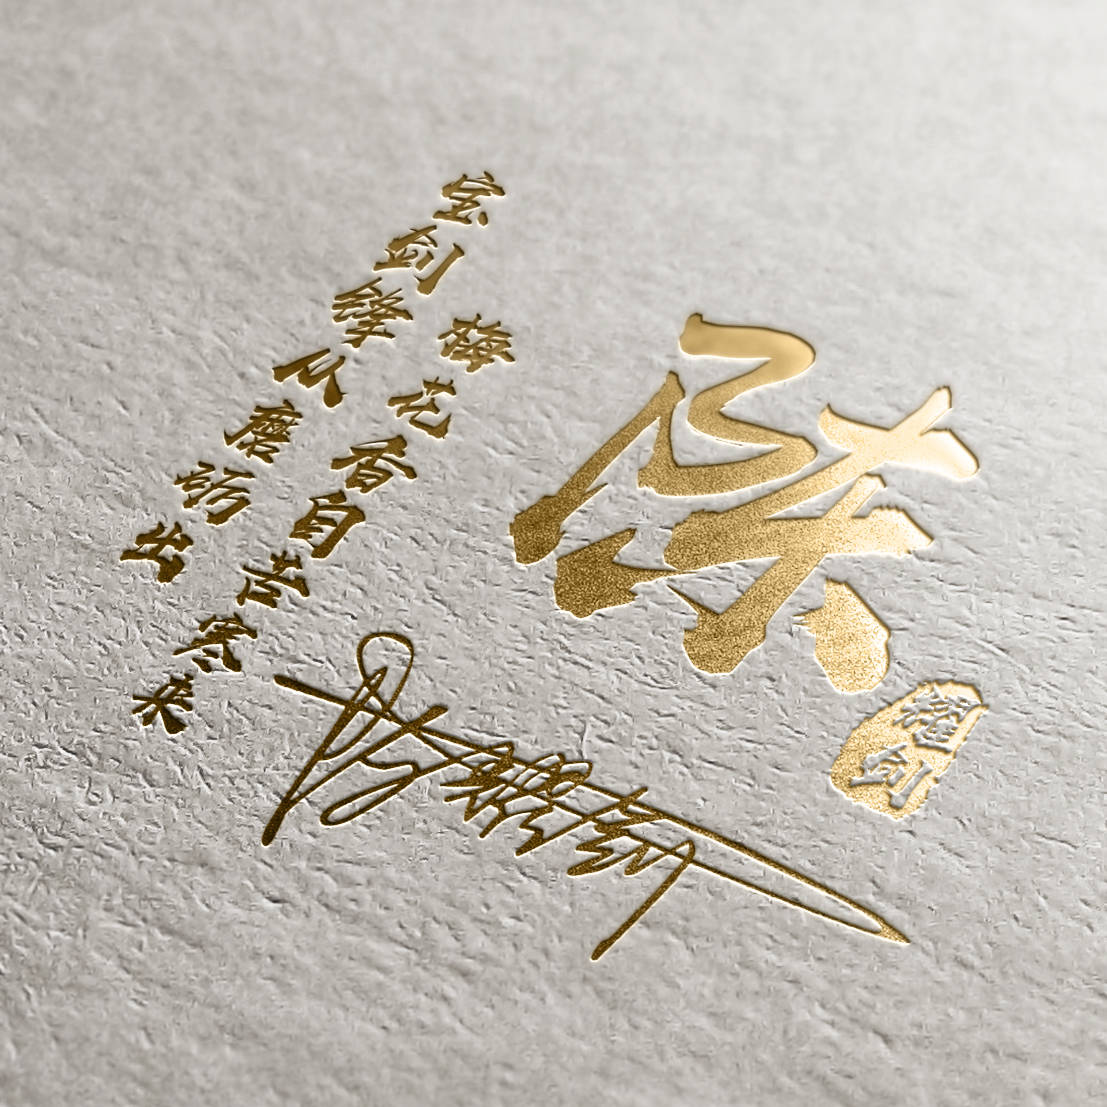 宝剑锋从磨砺出
梅花香自苦寒来
陈
耀剑